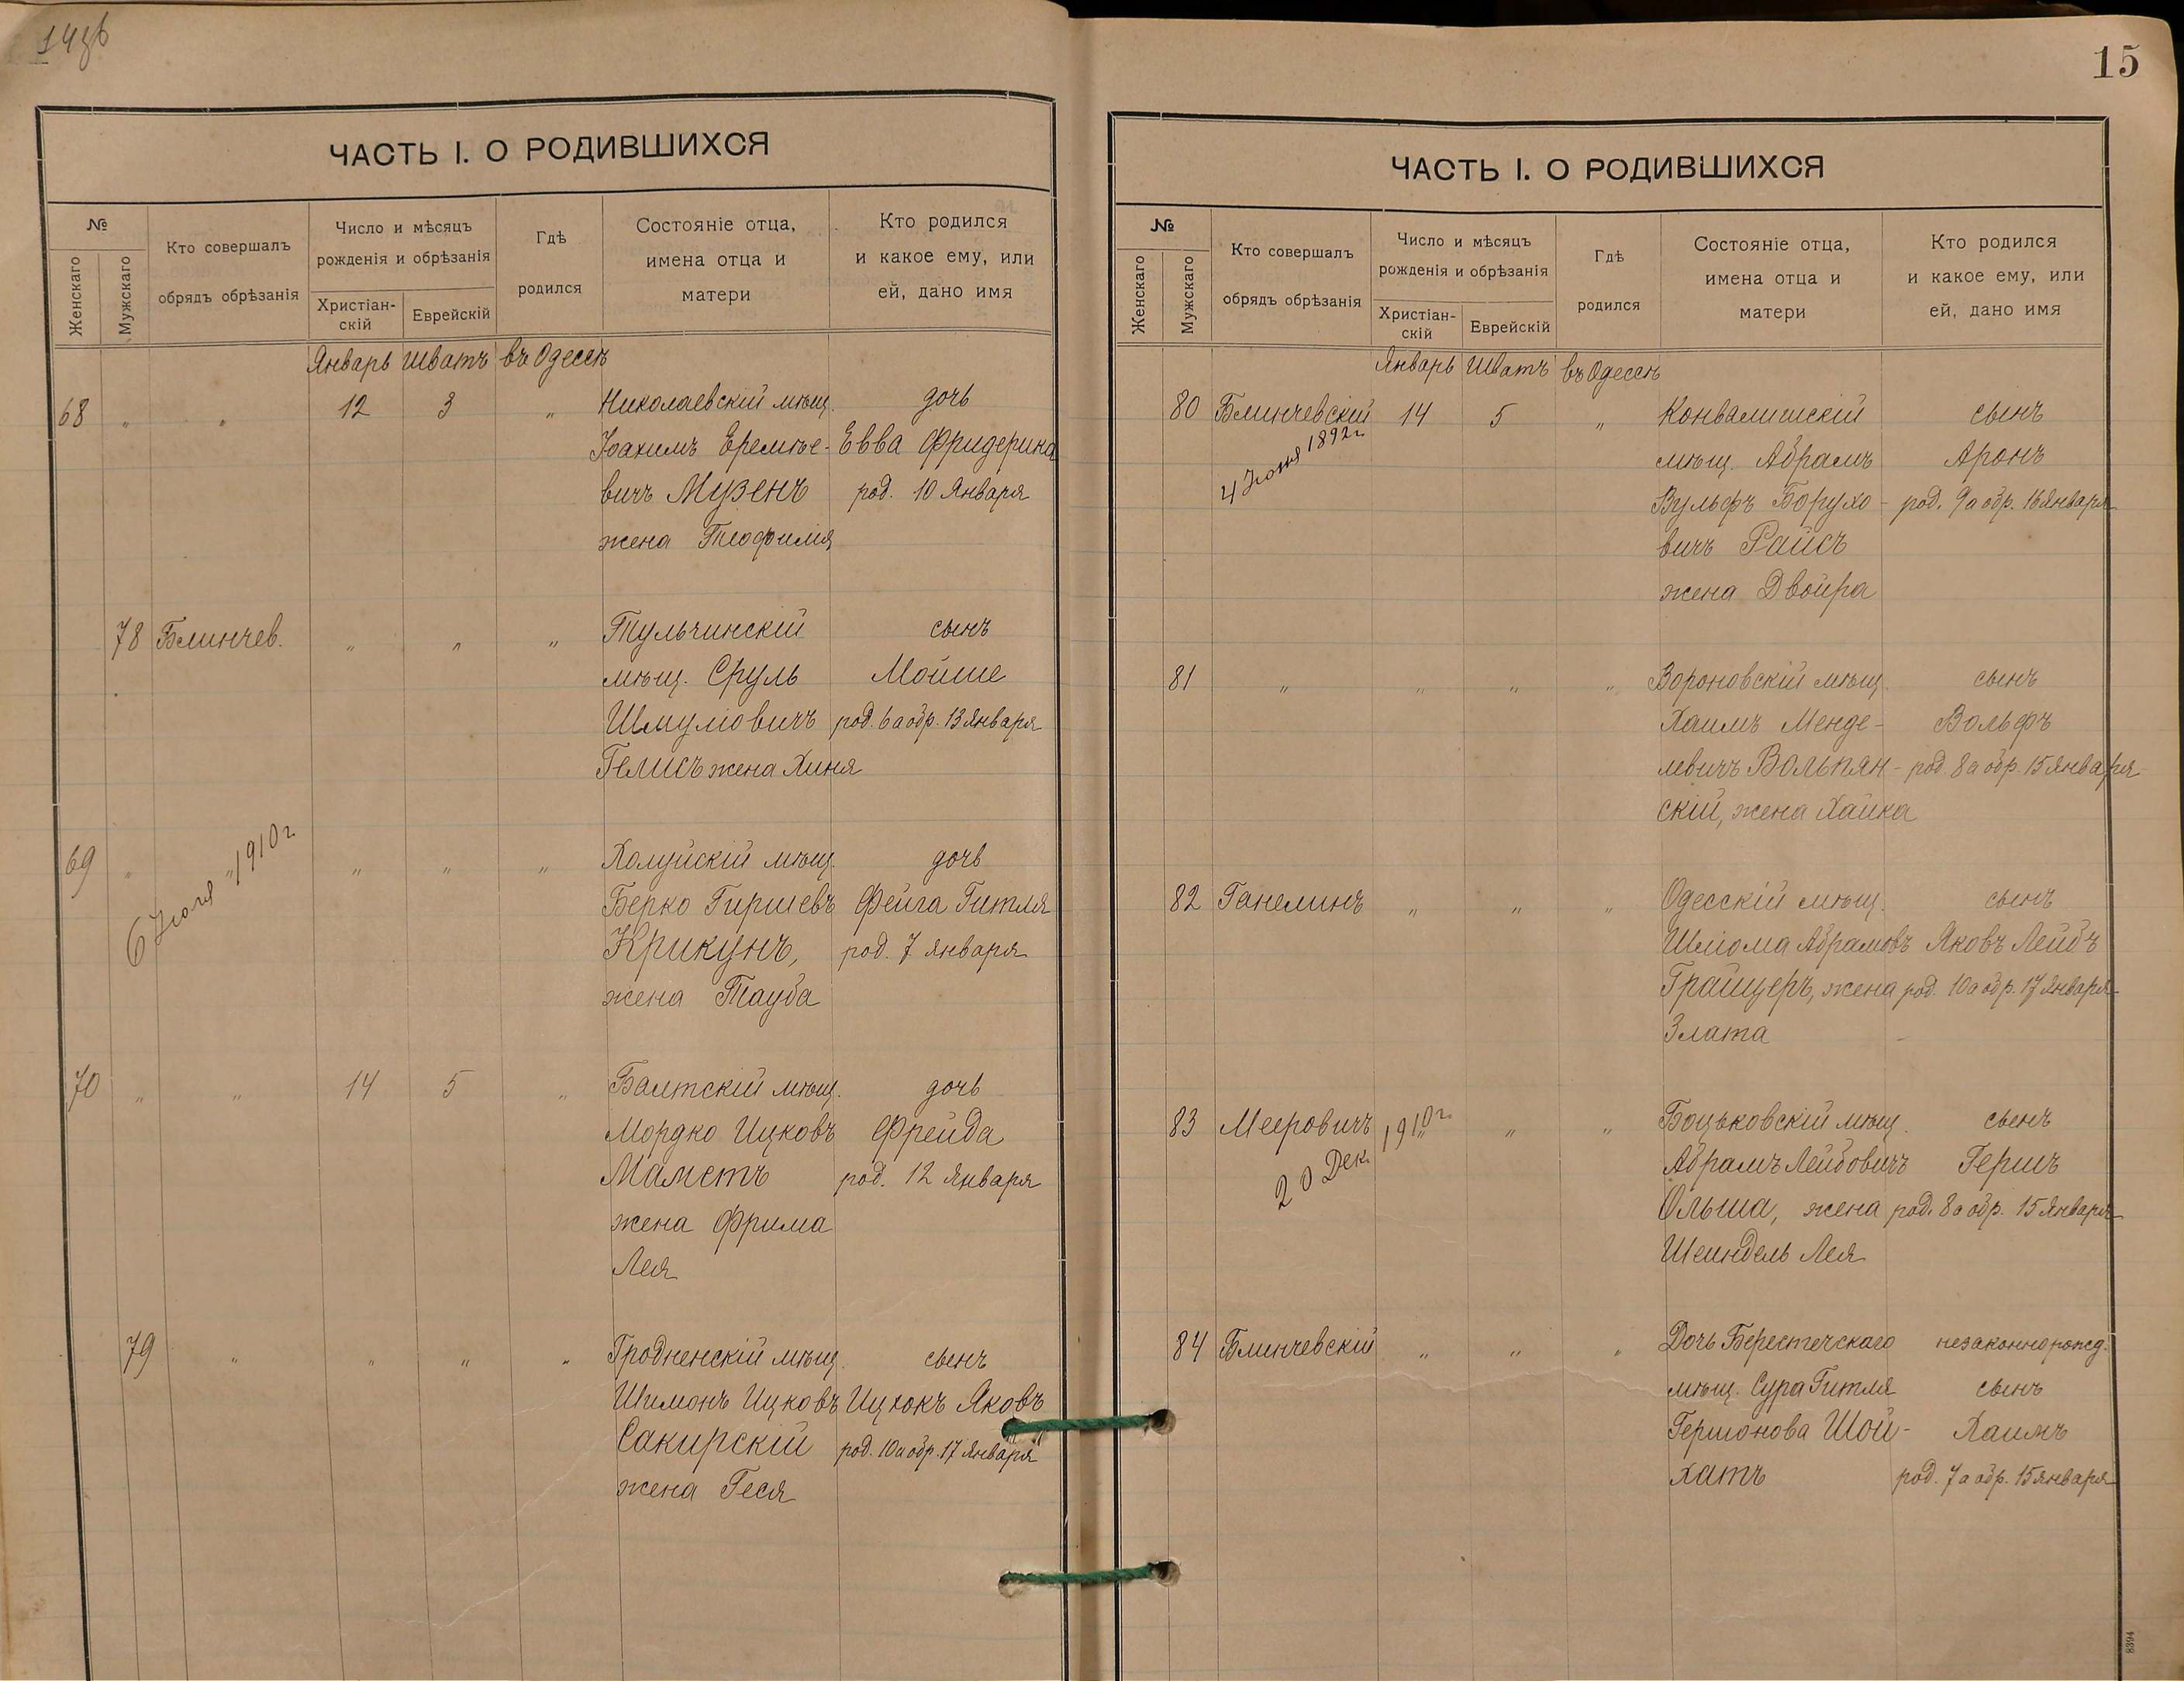 15
ЧАСТЬ I. О РОДИВШИХСЯ
№
Женскаго
Мужскаго
Кто совершалъ
обрядъ обрѣзанія
Число и мѣсяцъ
рожденія и обрѣзанія
Христіан-
скій
Еврейскій
Гдѣ
родился
Состояніе отца,
имена отца и
матери
Кто родился
и какое ему, или
ей, дано имя
Январь Шватъ въ Одессѣ
68 " " 12 3 " Николаевскій мѣщ. дочь
Іоахимъ Еремѣе- Евва Фридерика
вичъ Музенъ род. 10 Января
жена Теофилія
78 Блинчев. " " " Тульчинскій сынъ
мѣщ. Сруль Мойше
Шмуліовичъ род. 6 а обр. 13 Января
Гелисъ жена Хиня
69 " " " " " Холуйскій мѣщ. дочь
6 Іюля 1910 г.
Берко Гиршевъ Фейга Гитля
Крикунъ, род. 7 января
жена Тауба
70 " " 14 5 " Балтскій мѣщ. дочь
Мордко Ицковъ Фрейда
Маметъ род. 12 Января
жена Фрима
Лея
79 " " " " Гродненскій мѣщ. сынъ
Шимонъ Ицковъ Ицхокъ Яковъ
Сакирскій род. 10 а обр. 17 Января
жена Геся
ЧАСТЬ I. О РОДИВШИХСЯ
№
Женскаго
Мужскаго
Кто совершалъ
обрядъ обрѣзанія
Число и мѣсяцъ
рожденія и обрѣзанія
Христіан-
скій
Еврейскій
Гдѣ
родился
Состояніе отца,
имена отца и
матери
Кто родился
и какое ему, или
ей, дано имя
Январь Шватъ въ Одессѣ
80 Блинчевскій 14 5 " Конвалишскій сынъ
4 Іюня 1892 г.
мѣщ. Абрамъ Аронъ
Вульфъ Борухо- род. 9 а обр. 16 Января
вичъ Райсъ
жена Двойра
81 " " " " Вороновскій мѣщ. сынъ
Хаимъ Менде- Вольфъ
левичъ Вольпян- род. 8 а обр. 15 Января
скій, жена Хайка
82 Ганелинъ " " " Одесскій мѣщ. сынъ
Шліома Абрамовъ Яковъ Лейбъ
Грайцеръ, жена род. 10 а обр. 17 Января
Злата
83 Мееровичъ " " " Боцьковскій мѣщ. сынъ
20 Дек. 1910 г.
Абрамъ Лейбовичъ Гершъ
Ольша, жена род. 8 а обр. 15 Января
Шейндель Лея
84 Блинчевскій " " " Дочь Берестечскаго незаконнорожд.
мѣщ. Сура Гитля сынъ
Гершонова Шой- Хаимъ
хатъ род. 7 а обр. 15 января
8394